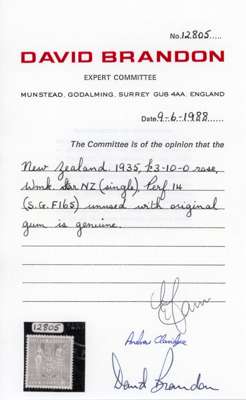 No. 12805
DAVID BRANDON
EXPERT COMMITTEE
MUNSTEAD, GODALMING, SURREY GU8 4AA, ENGLAND
Date 9-6-1988
The Committee is of the opinion that the
New Zealand 1935, £3-10-0 rose,
Wmk. star NZ (single), Perf 14
(S.G. F165) unused with original
gum is genuine.
12805
David Brandon